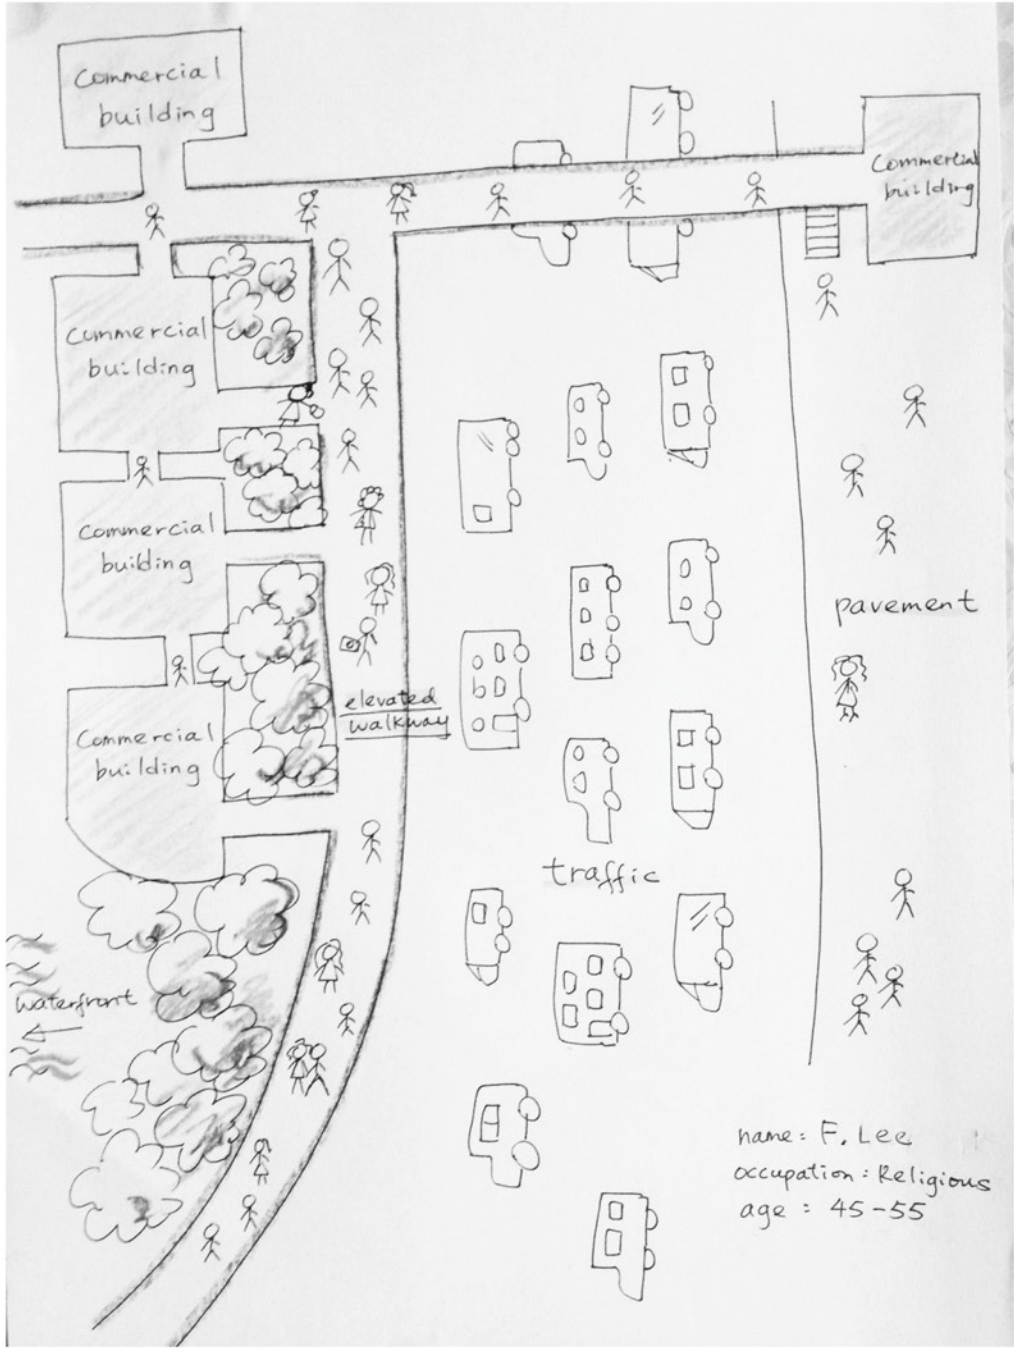 Commercial
building
Commercial
building
Commercial
building
Commercial
building
pavement
elevated
walkway
Commercial
building
traffic
waterfront
name: F. Lee
occupation: Religious
age : 45-55